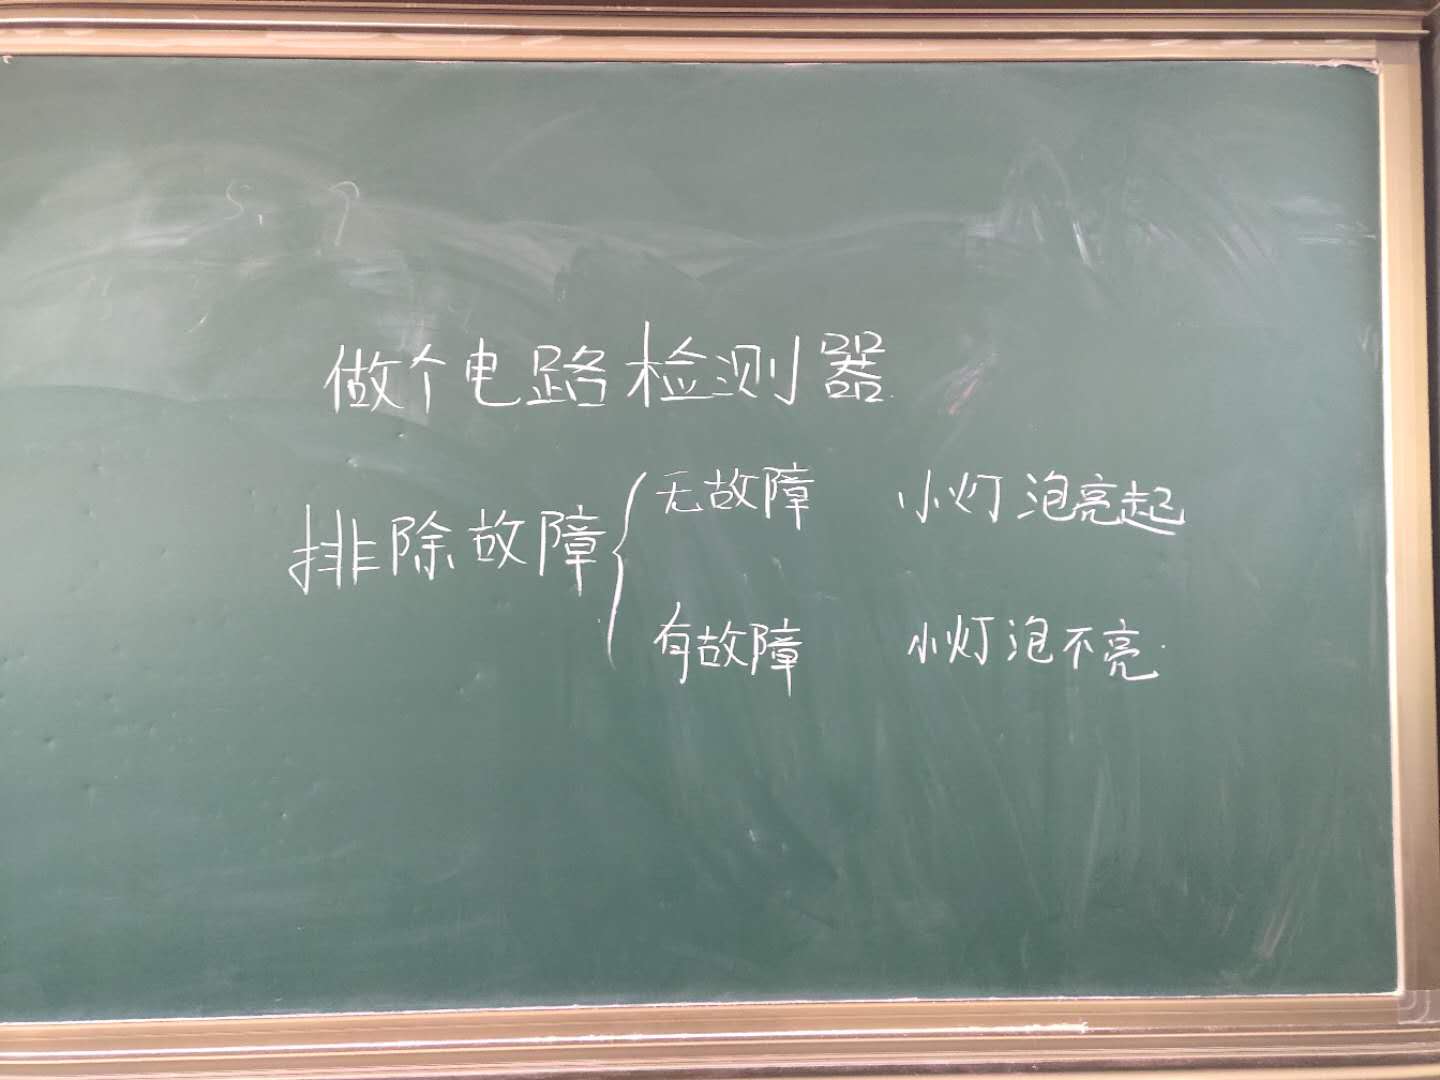 做个电路检测器
排除故障
无故障 小灯泡亮起
有故障 小灯泡不亮.